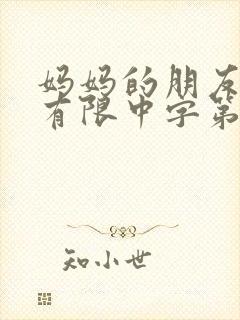 妈妈的朋友
有限中字第
知小世